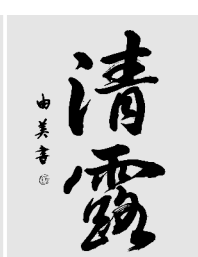 清露
由美書